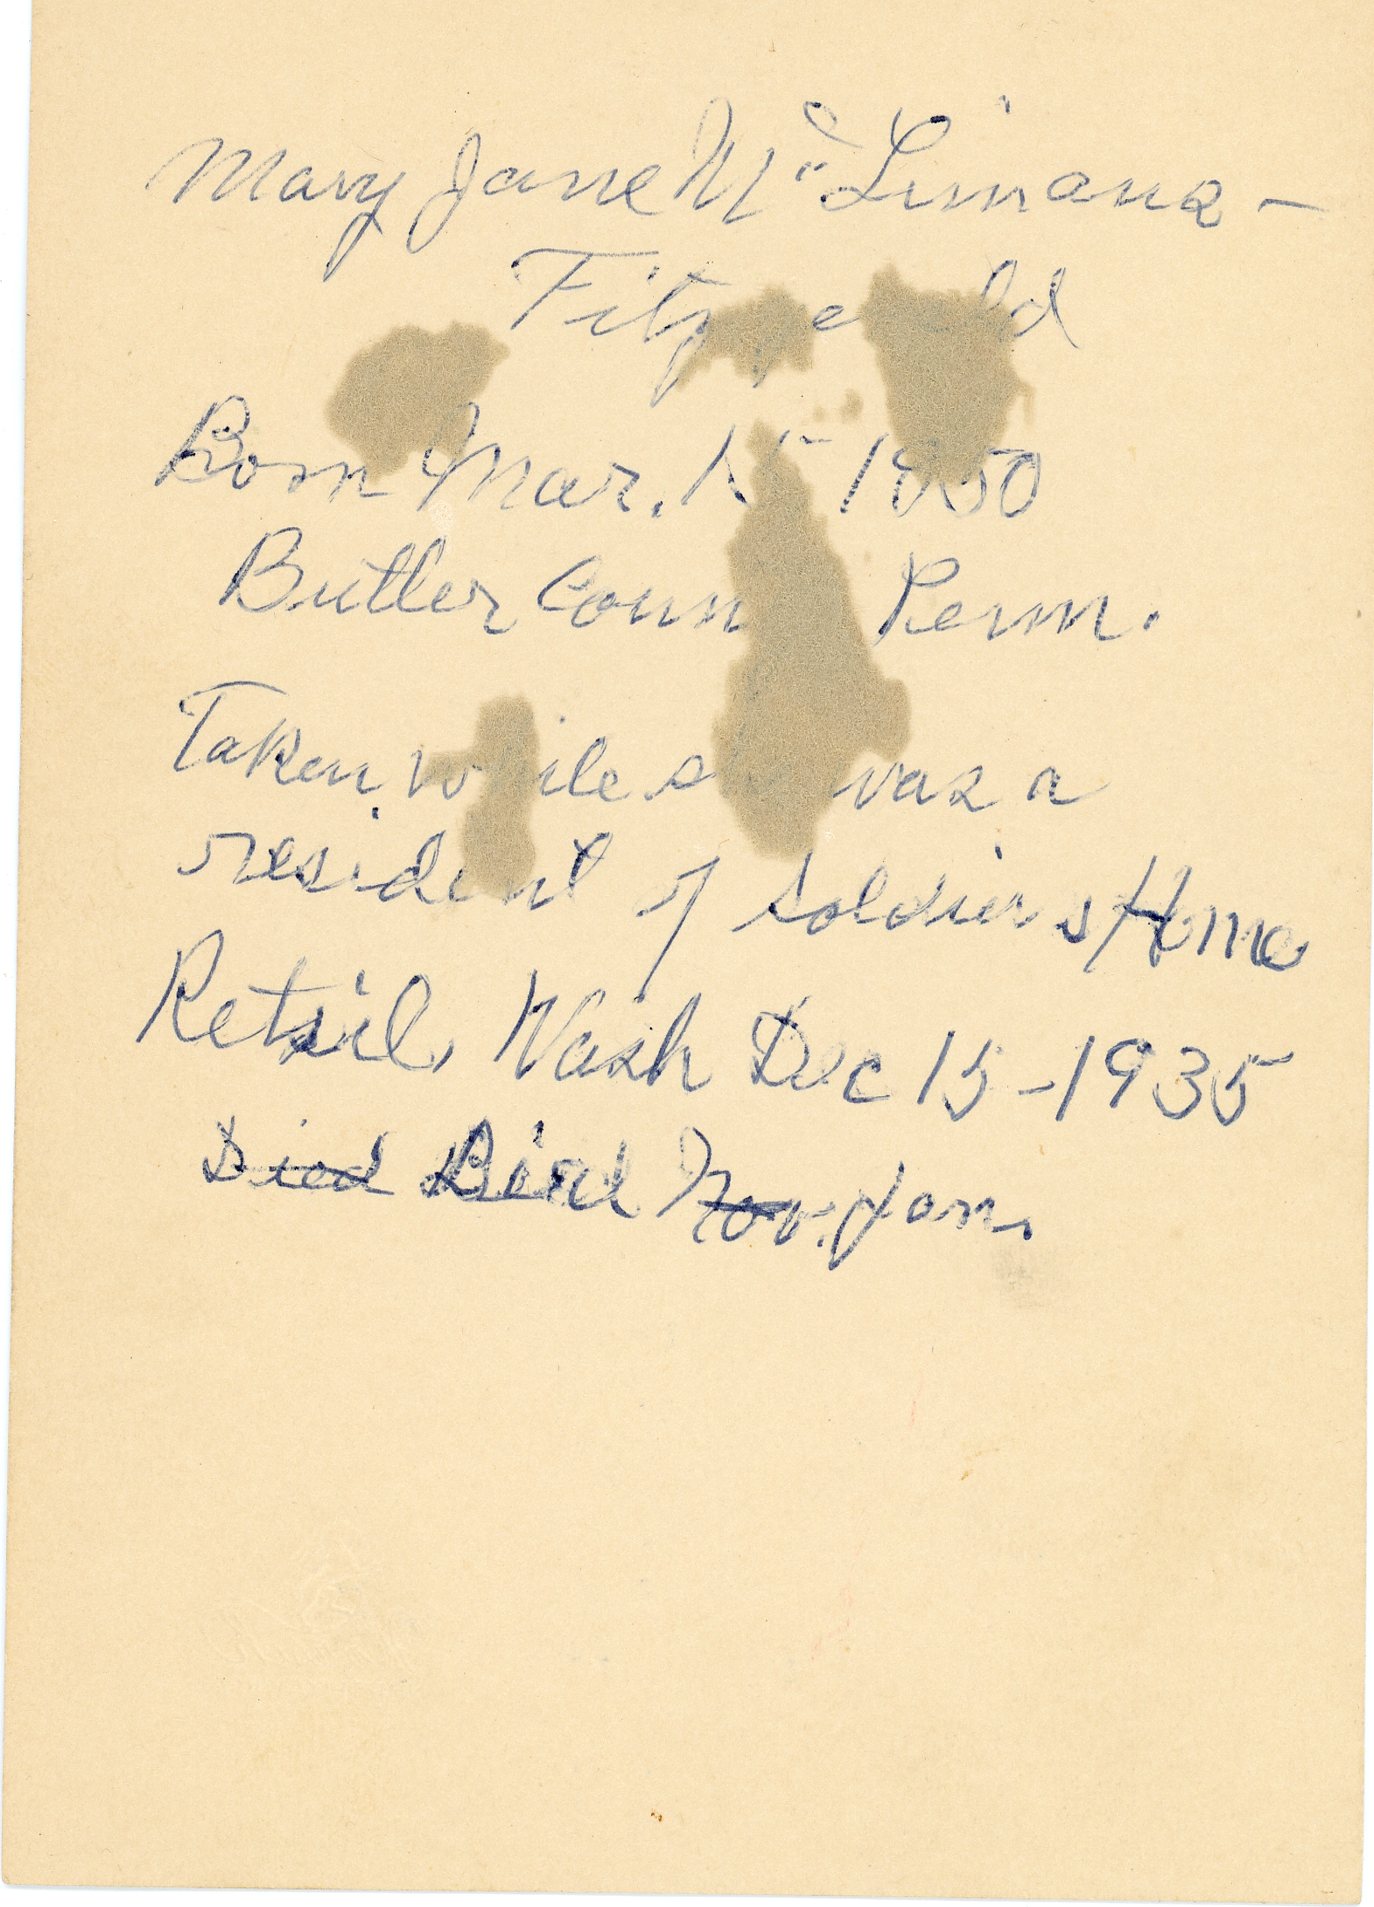 Mary Jane McLimans -
Fitzgerald
Born Mar. 15 1850
Butler Coun Penn.
Taken while she was a
resident of Soldiers Home
Retsil, Wash Dec 15 - 1935
Died Died Nov. Jan.